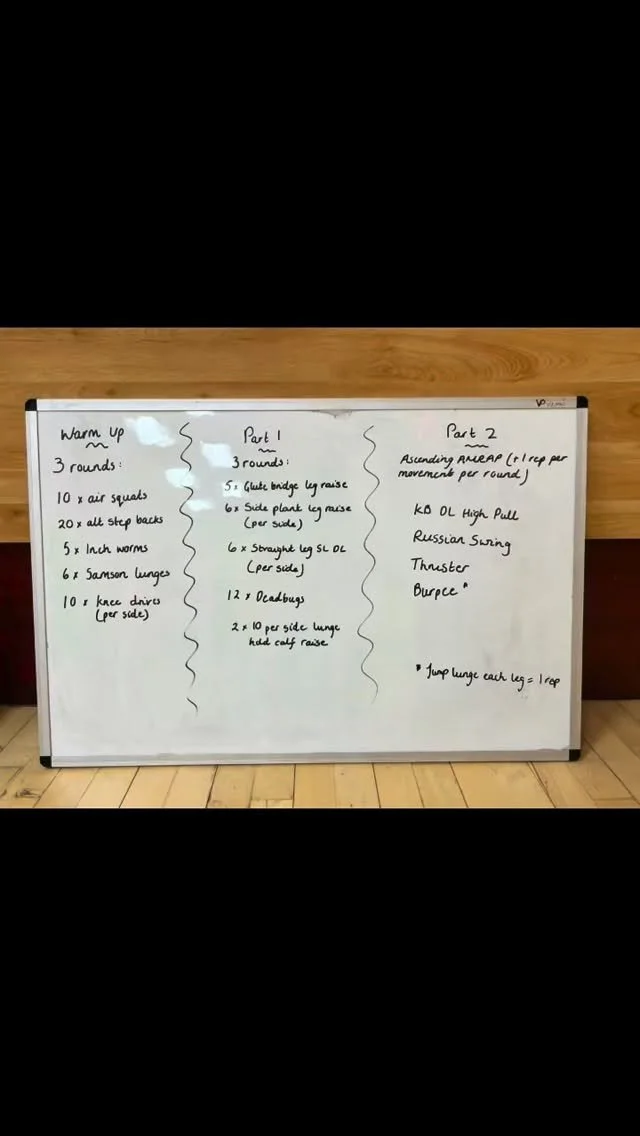 Warm Up
3 rounds:
10 x air squats
20 x alt step backs
5 x Inch worms
6 x Samson lunges
10 x knee drives
(per side)
Part 1
3 rounds:
5 x Glute bridge leg raise
6 x Side plank leg raise
(per side)
6 x Straight leg SL DL
(per side)
12 x Deadbugs
2 x 10 per side lunge
hold calf raise
Part 2
Ascending AMRAP (+1 rep per
movement per round)
KB DL High Pull
Russian Swing
Thruster
Burpee *
* Jump lunge each leg = 1 rep